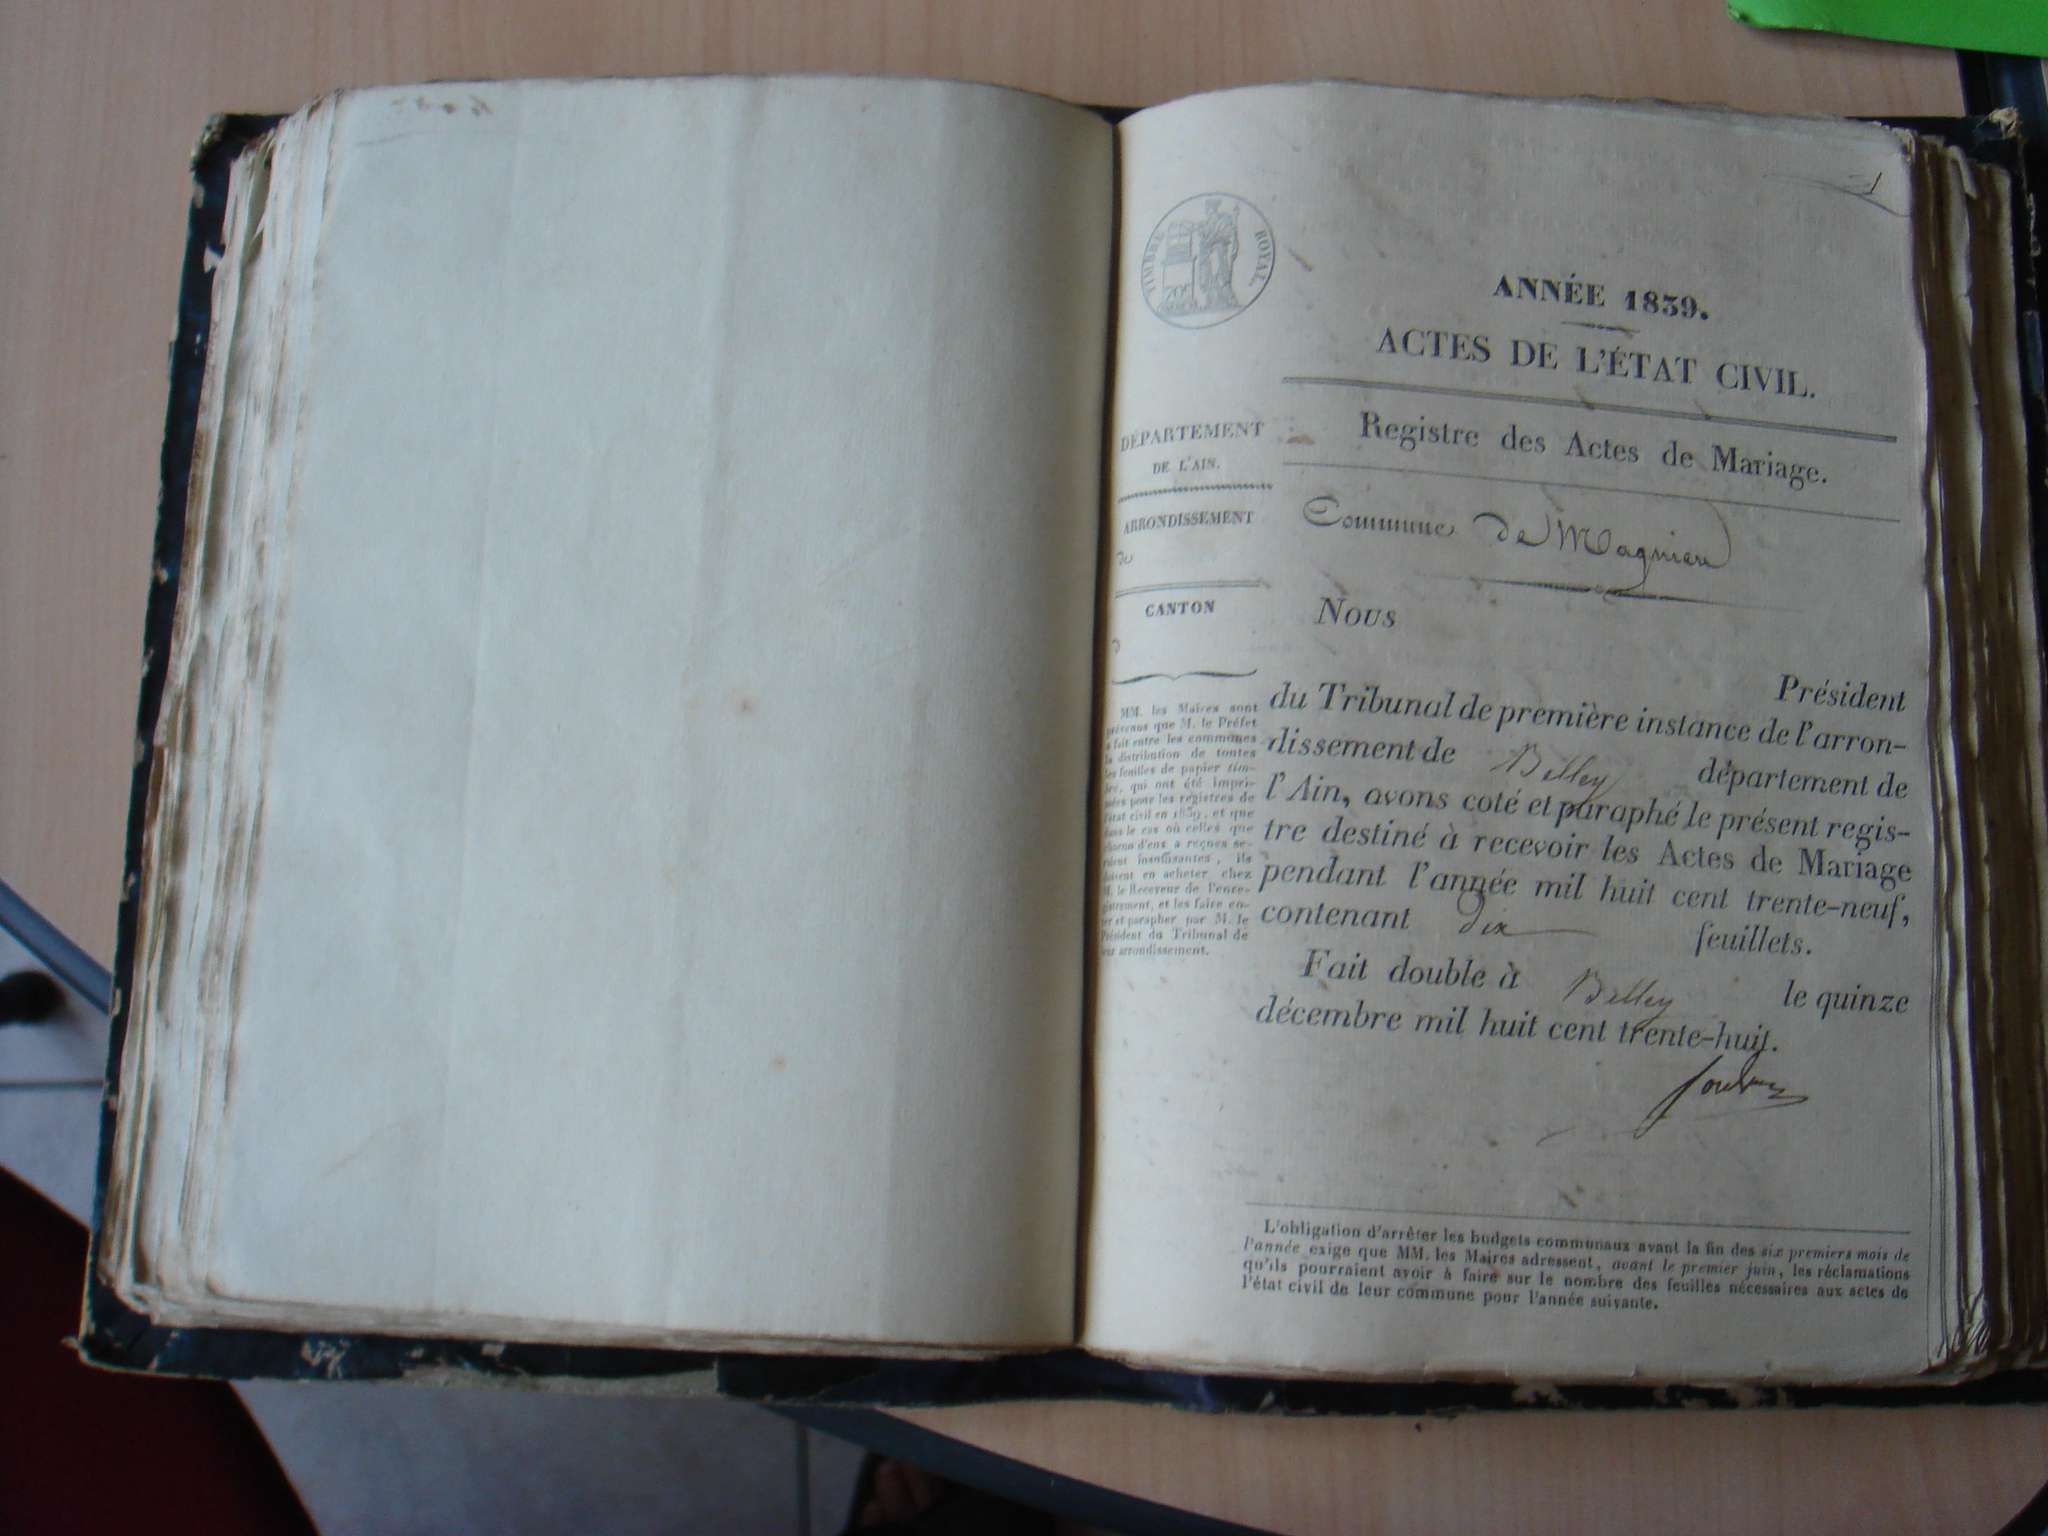 1
TIMBRE ROYAL
ANNÉE 1839.
ACTES DE L'ÉTAT CIVIL.
Registre des Actes de Mariage.
Commune de Magnieu
DÉPARTEMENT
DE L'AIN.
ARRONDISSEMENT
de
CANTON
d
MM. les Maires sont
prévenus que M. le Préfet
a fait entre les communes
la distribution de toutes
les feuilles de papier tim-
bré, qui ont été impri-
mées pour les registres de
l'état civil en 1839, et que
dans le cas où celles que
chacun d'eux a reçues se-
raient insuffisantes, ils
doivent en acheter chez
M. le Receveur de l'enre-
gistrement, et les faire co-
ter et parapher par M. le
Président du Tribunal de
leur arrondissement.
Nous
Président
du Tribunal de première instance de l'arron-
dissement de Belley département de
l'Ain, avons coté et paraphé le présent regis-
tre destiné à recevoir les Actes de Mariage
pendant l'année mil huit cent trente-neuf,
contenant dix feuillets.
Fait double à Belley le quinze
décembre mil huit cent trente-huit.
L'obligation d'arrêter les budgets communaux avant la fin des six premiers mois de
l'année exige que MM. les Maires adressent, avant le premier juin, les réclamations
qu'ils pourraient avoir à faire sur le nombre des feuilles nécessaires aux actes de
l'état civil de leur commune pour l'année suivante.